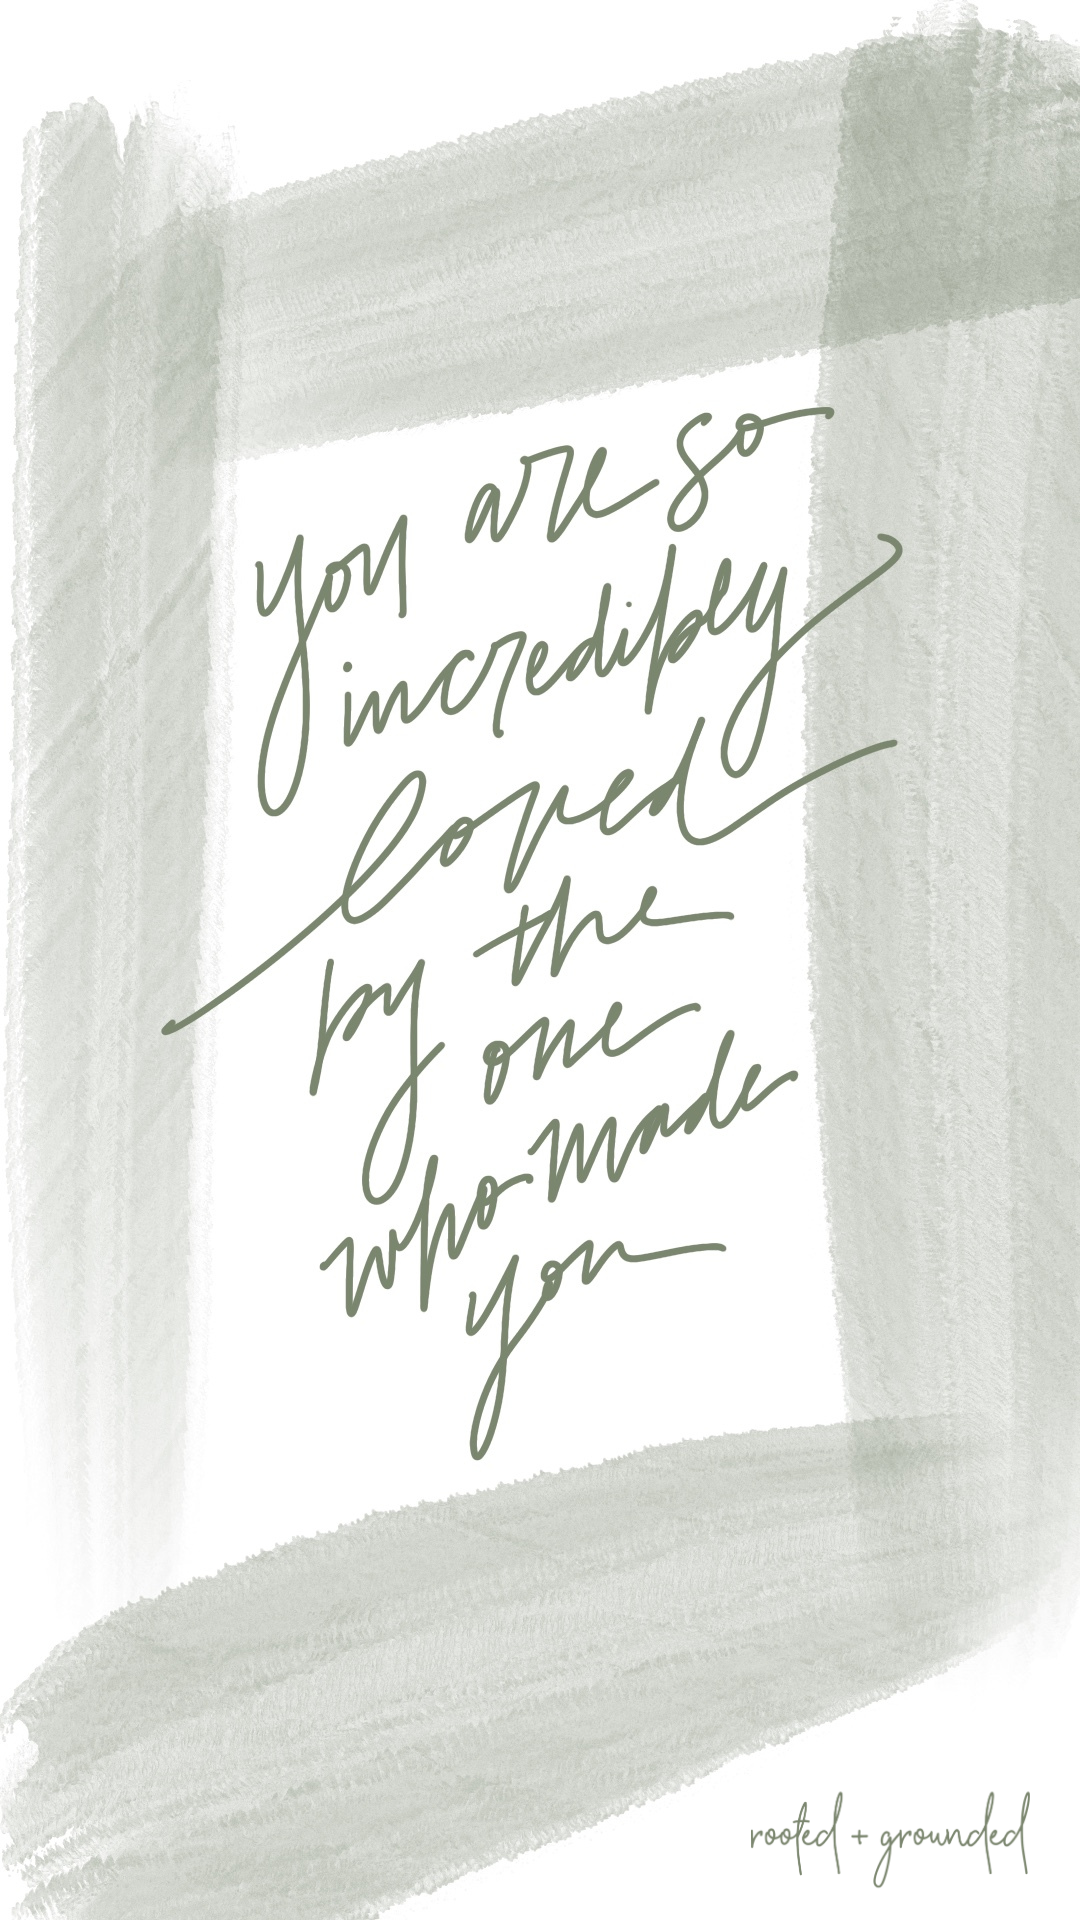 you are so
incredibly
loved
by the
one
who made
you
rooted + grounded